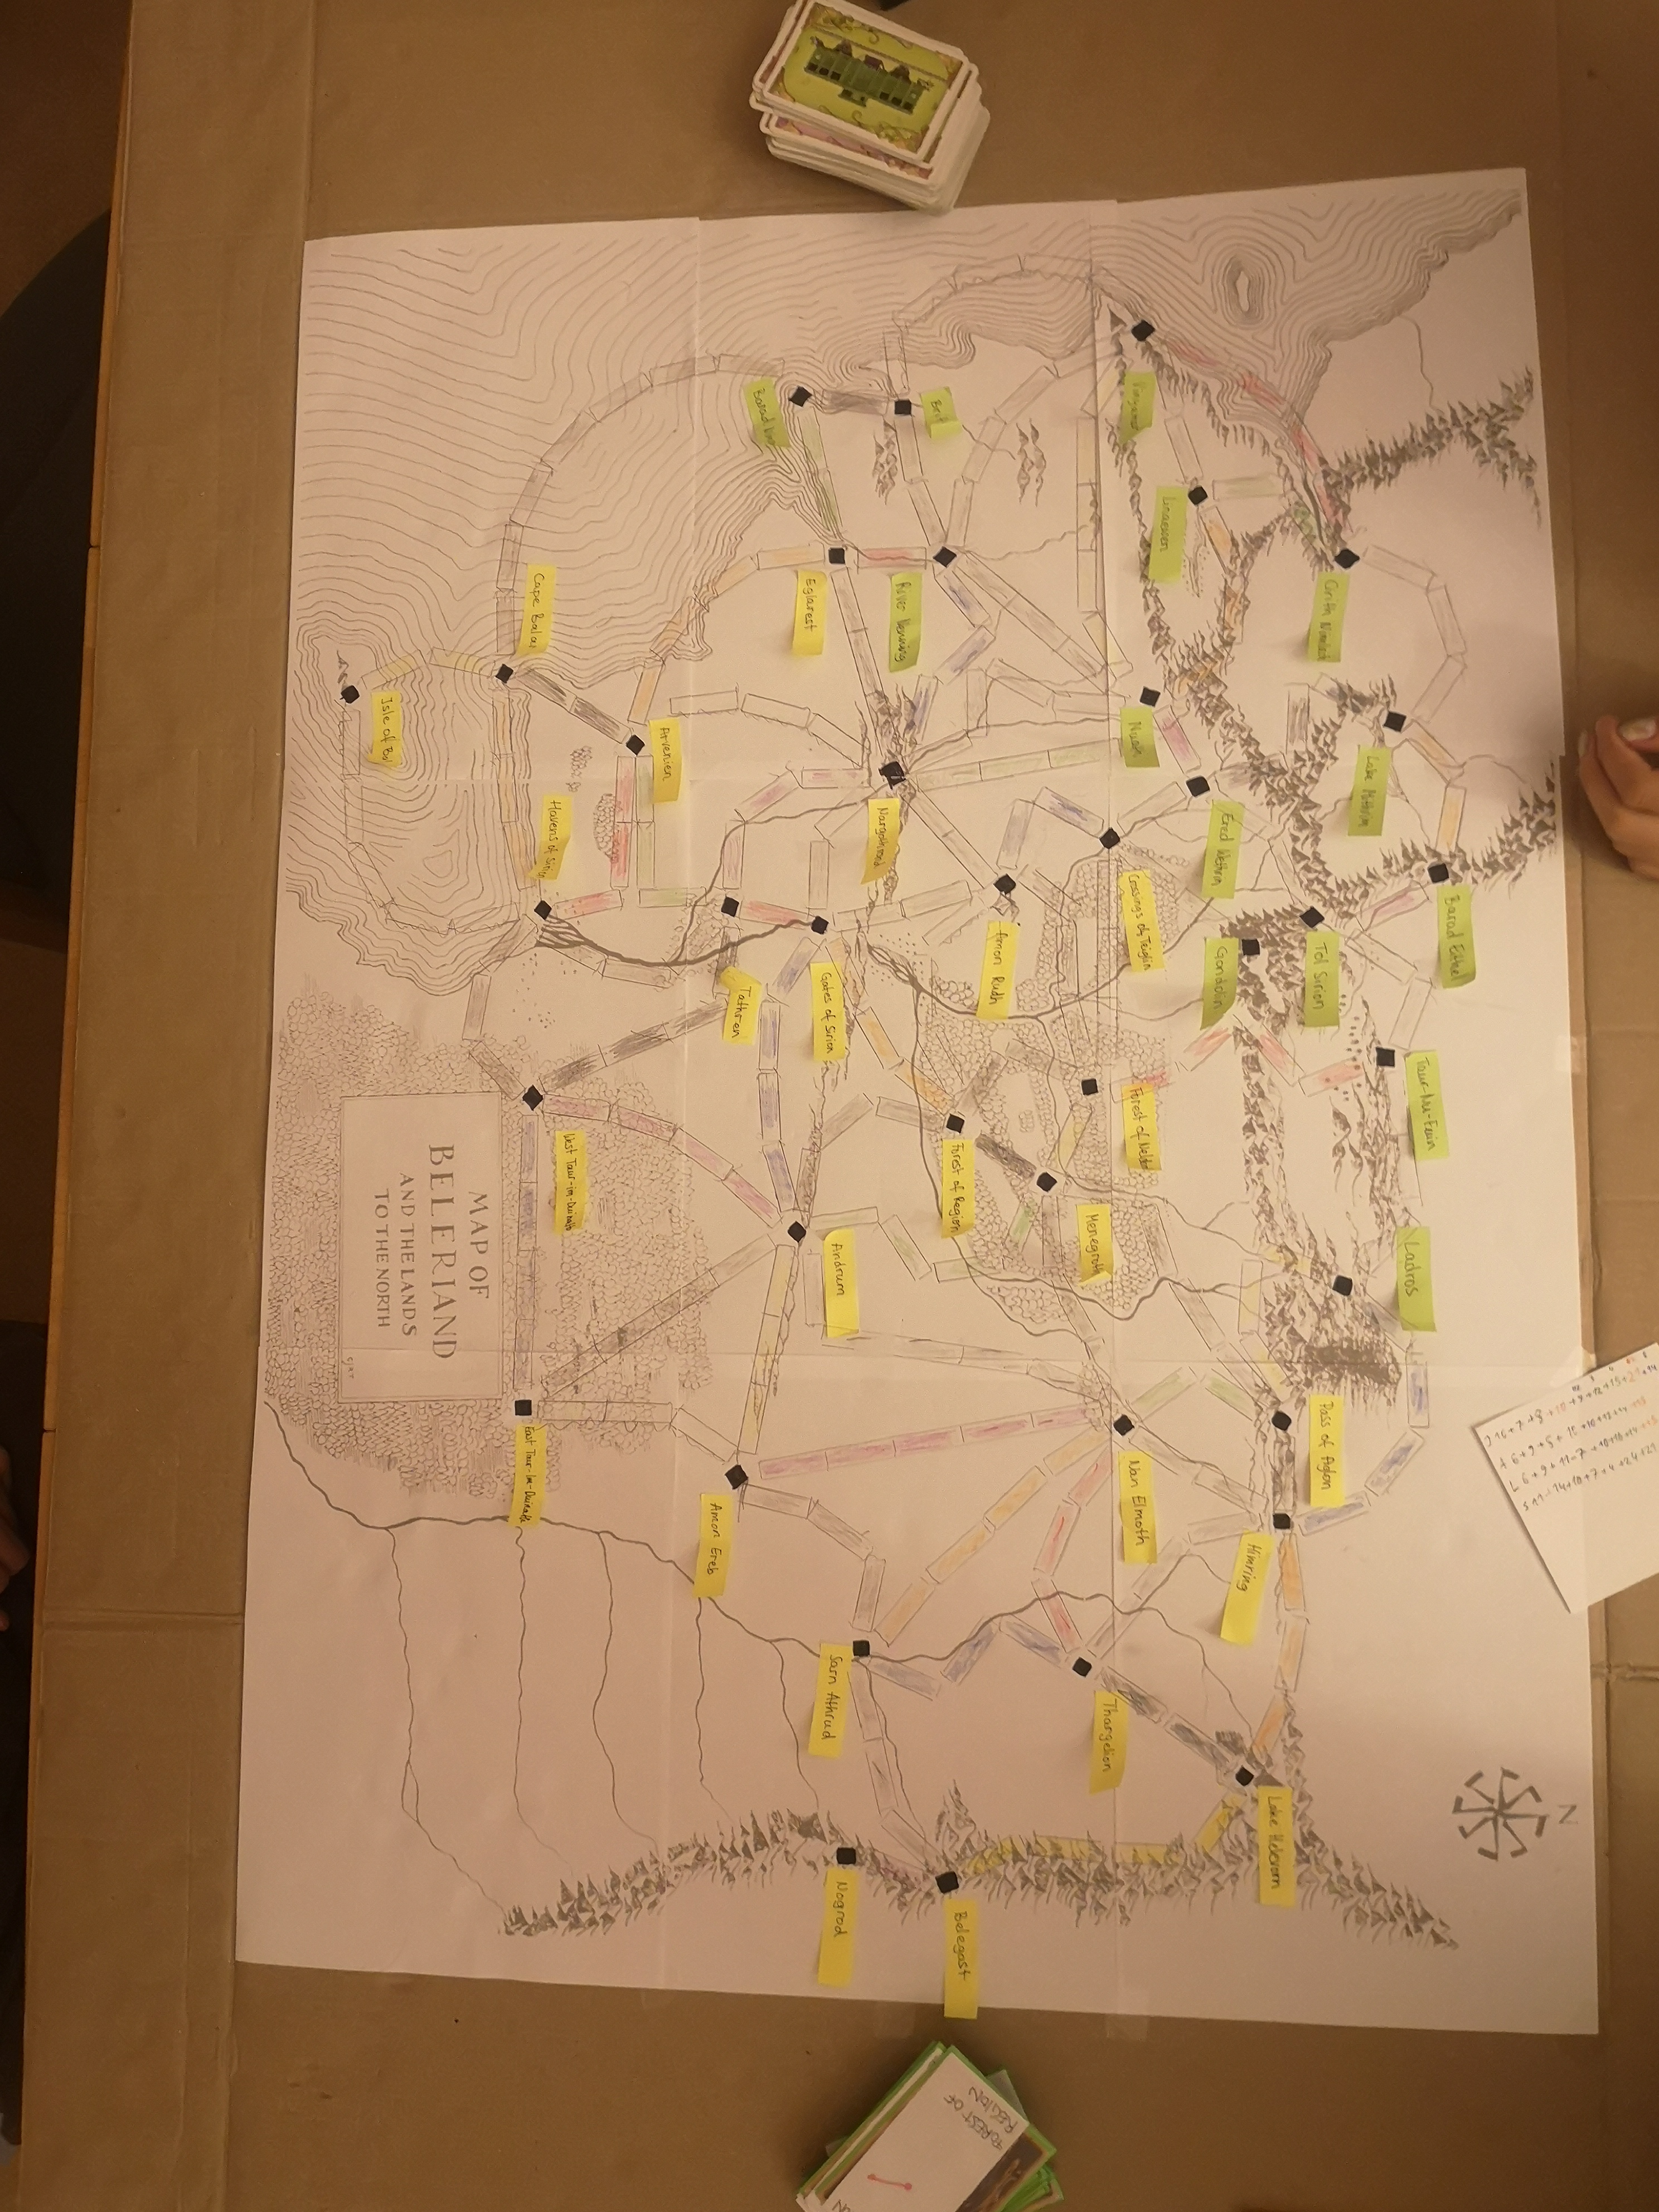 N
Barad Eithel
Taur-Nu-Fuin
Ladros
Lake Mithrim
Cirith Ninniach
Tol Sirion
Pass of Aglon
Lake Helevorn
Himring
Ered Wethrin
Gondolin
Linaewen
Vinyamar
Nuath
Crossings of Teiglin
Forest of Neldor
Nan Elmoth
Thargelion
Menegroth
Amon Rudh
Forest of Region
Belegast
Brit
River Nenning
Nargothrond
Gates of Sirion
Andrum
Sarn Athrud
Nogrod
Eglarest
Barad Nim
Tathren
Amon Ereb
Arvenien
Havens of Sirion
West Taur-im-Duinath
Cape Balar
East Taur-Im-Duinath
Isle of Bal
MAP OF
BELERIAND
AND THE LANDS
TO THE NORTH
CJRT
FOREST OF
REGION